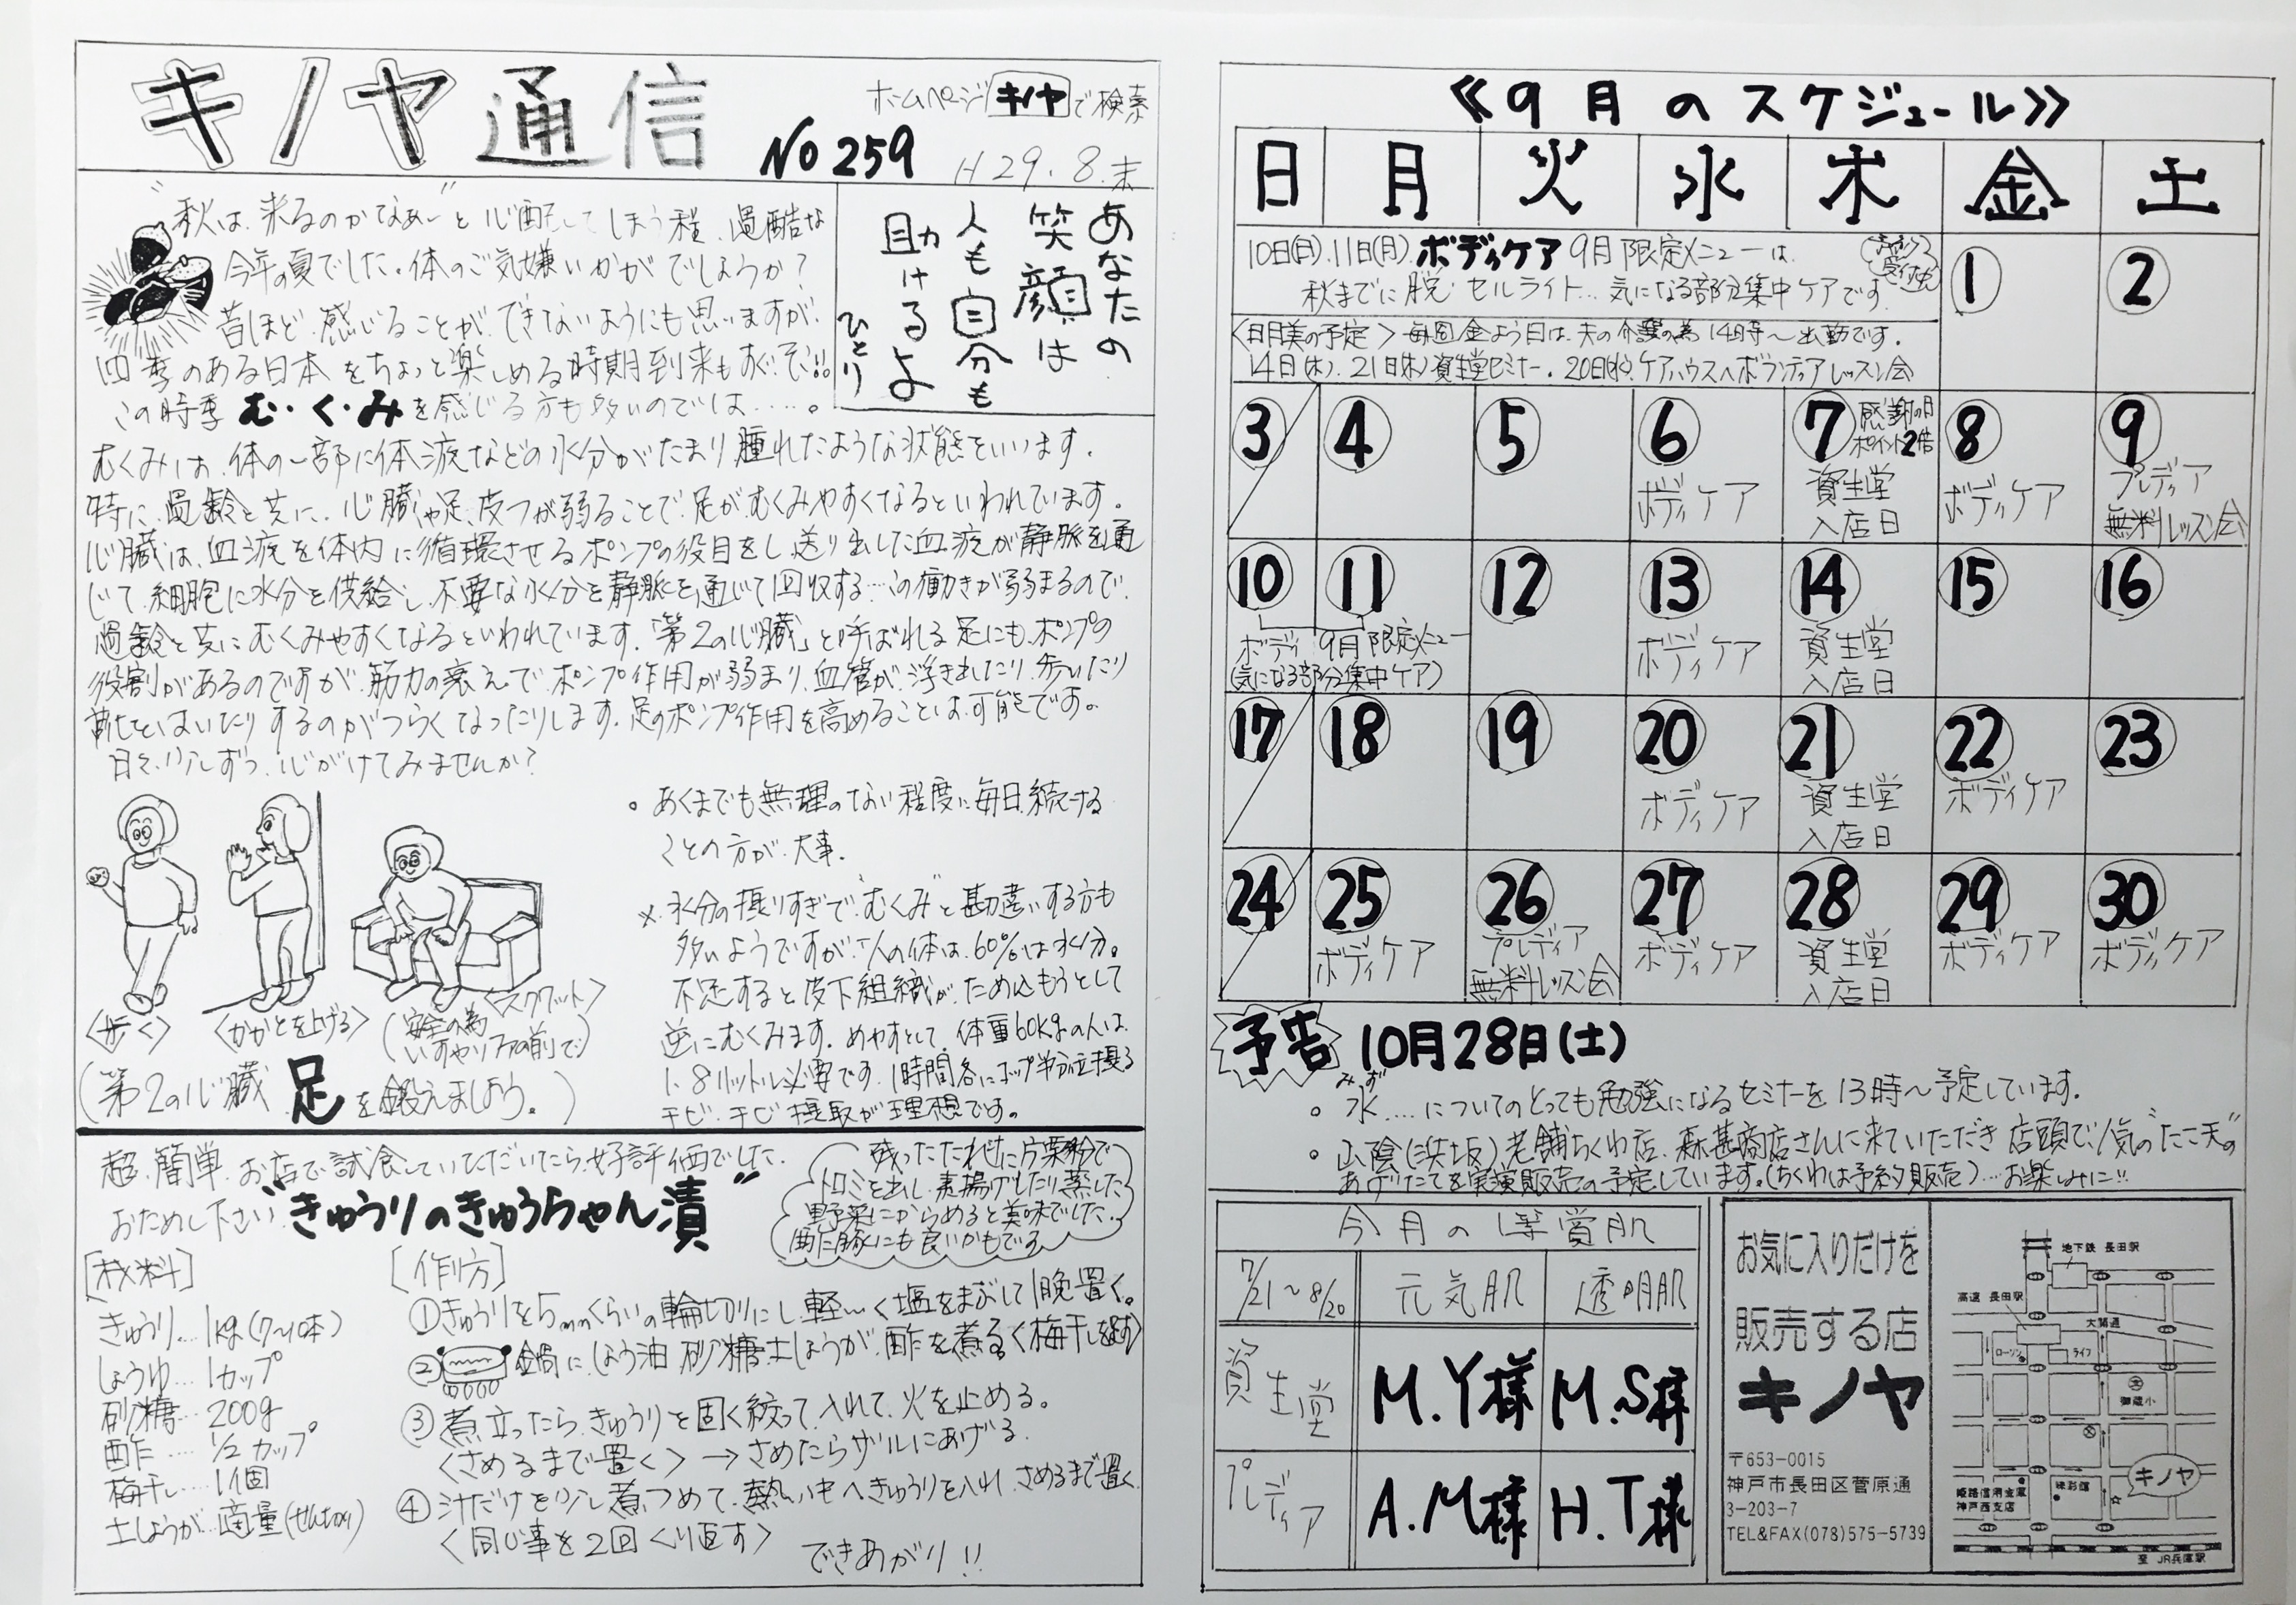 キノヤ通信
ホームページ キノヤ で検索
No 259
H 29.8.末
"秋は、来るのかなぁ〜"と心配してしまう程、過酷な
今年の夏でした。体のご気嫌いかがでしょうか?
昔ほど感じることができないようにも思いますが
四季のある日本をちょっと楽しめる時期到来もすぐそこ!!
この時季 む・く・み を感じる方も多いのでは……。
あなたの
笑顔は
人も自分も
助けるよ
ひとり
むくみは、体の一部に体液などの水分がたまり腫れたような状態をいいます。
特に、過齢と共に、心臓や足、皮フが弱ることで足がむくみやすくなるといわれています。
心臓は、血液を体内に循環させるポンプの役目をし、送り出した血液が静脈を通
じて、細胞に水分を供給し、不要な水分を静脈を通じて回収する…この働きが弱まるので、
過齢と共にむくみやすくなるといわれています。「第2の心臓」と呼ばれる足にも、ポンプの
役割があるのですが、筋力の衰えでポンプ作用が弱まり、血管が浮き出たり、歩いたり
靴をはいたりするのがつらくなったりします。足のポンプ作用を高めることは可能です。
日々、少しずつ、心がけてみませんか?
。あくまでも無理のない程度に毎日続ける
ことの方が大事。
※水分の摂りすぎで"むくみ"と勘違いする方も
多いようですが、人の体は、60%は水分。
不足すると皮下組織がため込もうとして
逆にむくみます。めやすとして、体重60kgの人は、
1.8リットル必要です。1時間各にコップ半分位摂る
チビ、チビ摂取が理想です。
<歩く>
<かかとを上げる>
<スクワット>
(安全の為
いすやソファの前で)
(第2の心臓 足 を鍛えましょう。)
超、簡単、お店で試食していただいたら、好評価でした。
おためし下さい "きゅうりのきゅうちゃん漬"
残ったたれは片栗粉で
トロミを出し、素揚げしたり蒸した
野菜にからめると美味でした。
酢豚にも良いかもです
[材料]
きゅうり…1kg(7〜10本)
しょうゆ…1カップ
砂糖…200g
酢…½カップ
梅干し…1個
土しょうが…適量(せん切り)
[作り方]
①きゅうりを5mmくらいの輪切りにし、軽〜く塩をまぶして1晩置く。
②鍋にしょう油、砂糖、土しょうが、酢を煮る<梅干しも>
③煮立ったら、きゅうりを固く絞って、入れて、火を止める。
<さめるまで置く>→さめたらザルにあげる。
④汁だけを少し煮つめて、熱い中へきゅうりを入れ、さめるまで置く。
<同じ事を2回くり返す>
できあがり!!
≪9月のスケジュール≫
日 月 火 水 木 金 土
10日(日).11日(月).ボディケア 9月限定メニューは、
秋までに脱・セルライト…気になる部分集中ケアです。
受付中
<明美の予定> 毎回金よう日は、夫の介護の為14時〜出勤です。
14日(木).21日(木)資生堂セミナー。20日(水).ケアハウスへボランティアレッスン会
1 2
3 4 5 6 7 8 9
感謝の日
ポイント2倍
ボディケア
資生堂
入店日
ボディケア
プレディア
無料レッスン会
10 11 12 13 14 15 16
ボディ 9月限定メニュー
(気になる部分集中ケア)
ボディケア
資生堂
入店日
17 18 19 20 21 22 23
ボディケア
資生堂
入店日
ボディケア
24 25 26 27 28 29 30
ボディケア
プレディア
無料レッスン会
ボディケア
資生堂
入店日
ボディケア
ボディケア
予告 10月28日(土)
みず
。水……についてのとっても勉強になるセミナーを13時〜予定しています。
。山陰(浜坂)老舗ちくわ店、森甚商店さんに来ていただき店頭で、人気の"たこ天"の
あげたてを実演販売の予定しています。(ちくわは予約販売)…お楽しみに!!
今月の 賞肌
7/21〜8/20 元気肌 透明肌
資生堂 M.Y様 M.S様
プレディア A.M様 H.T様
お気に入りだけを
販売する店
キノヤ
〒653-0015
神戸市長田区菅原通
3-203-7
TEL&FAX(078)575-5739
地下鉄 長田駅
高速 長田駅
大開通
ローソン
ライフ
御蔵小
姫路信用金庫
神戸西支店
キノヤ
至 JR兵庫駅